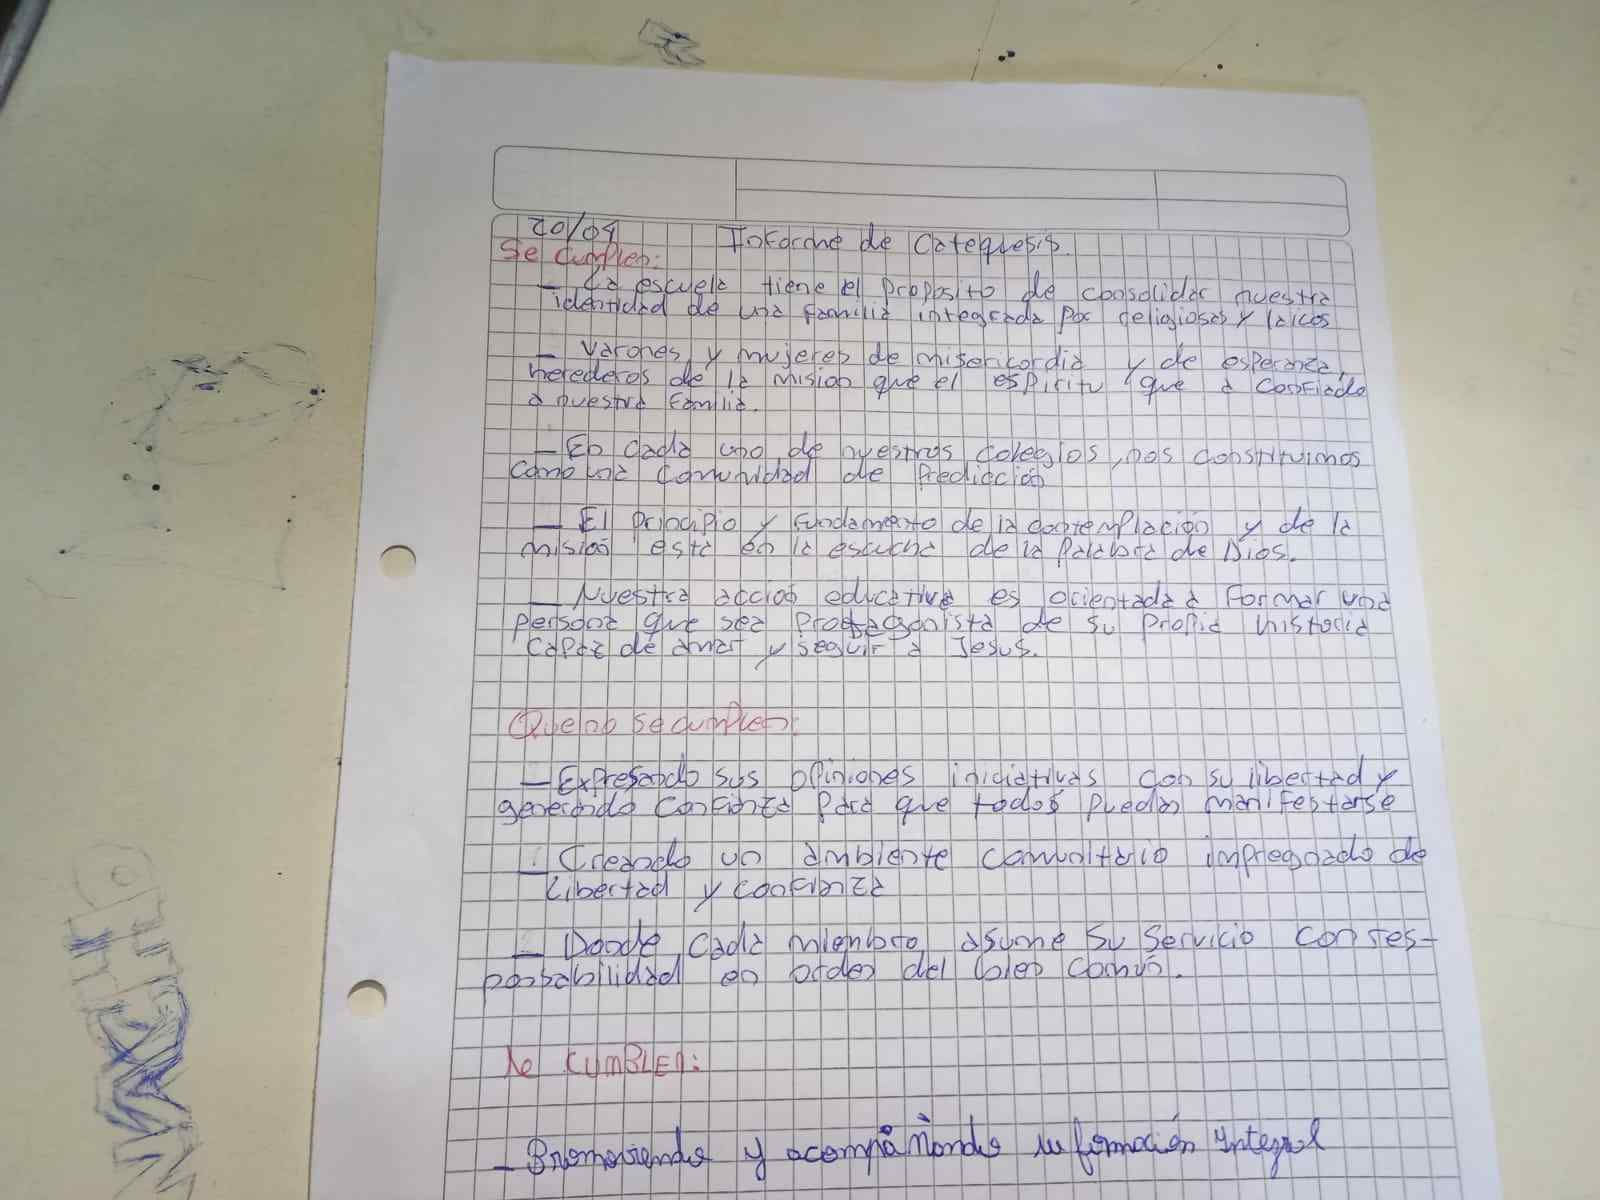 20/04 Informe de Catequesis.
Se cumplen:
- La escuela tiene el proposito de consolidar nuestra
identidad de una familia integrada por religiosos y laicos
- Varones y mujeres de misericordia y de esperanza,
herederos de la mision que el espiritu que a confiado
a nuestra familia.
- En cada uno de nuestros colegios, nos constituimos
como una comunidad de Predicación
- El principio y fundamento de la contemplación y de la
misión esta en la escucha de la Palabra de Dios.
- Nuestra acción educativa es orientada a formar una
persona que sea protagonista de su propia historia
capaz de amar y seguir a Jesus.
Que no se cumplen:
- Expresando sus opiniones iniciativas con su libertad y
generando confianza para que todos puedan manifestarse
- Creando un ambiente comunitario impregnado de
libertad y confianza
- Donde cada miembro asume su servicio con res-
ponsabilidad en orden del bien común.
Se CUMPLEN:
- Promoviendo y acompañando su formación integral